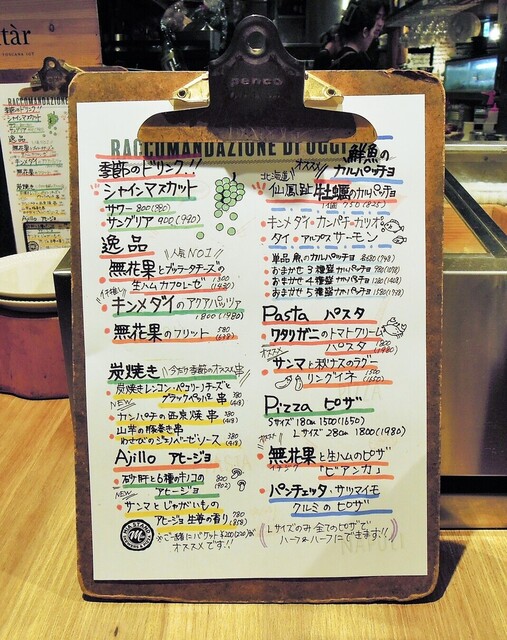 penco
RACCOMANDAZIONE DI OGGI
季節のドリンク!!
シャインマスカット
サワー 800(880)
サングリア 900(990)
逸品
人気NO1
無花果とブッラータチーズの
生ハムカプレーゼ 1300(1430)
キンメダイのアクアパッツァ
1800(1980)
無花果のフリット 580(638)
炭焼き
今だけ季節のオススメ串
炭焼きレンコン・ペコリーノチーズと
ブラックペッパー串 380(418)
NEW
カンパチの西京焼串 380(418)
山芋の豚巻き串
わさびのジェノベーゼソース 380(418)
Ajillo アヒージョ
砂肝と6種のキノコの
アヒージョ
NEW
サンマとじゃがいもの
アヒージョ 生姜の香り 780(858)
※ご一緒にバケット¥200(220)が
オススメです!!
鮮魚の
カルパッチョ
北海道
オススメ
仙鳳趾 牡蠣のカルパッチョ
1個 750(825)
キンメダイ・カンパチ・カツオ
タイ・アルプスサーモン
単品 魚のカルパッチョ
おまかせ 3種盛カルパッチョ
おまかせ 4種盛カルパッチョ
おまかせ 5種盛カルパッチョ
Pasta パスタ
ワタリガニのトマトクリーム
パスタ 1800(1980)
オススメ
サンマと秋ナスのラグー
リングイネ 1500(1650)
Pizza ピザ
Sサイズ 18cm 1500(1650)
Lサイズ 28cm 1800(1980)
オススメ
無花果と生ハムのピザ
イチジク
"ビアンカ"
パンチェッタ・サツマイモ
クルミのピザ
Lサイズのみ全てのピザで
ハーフ&ハーフにできます!!
NAPOLI